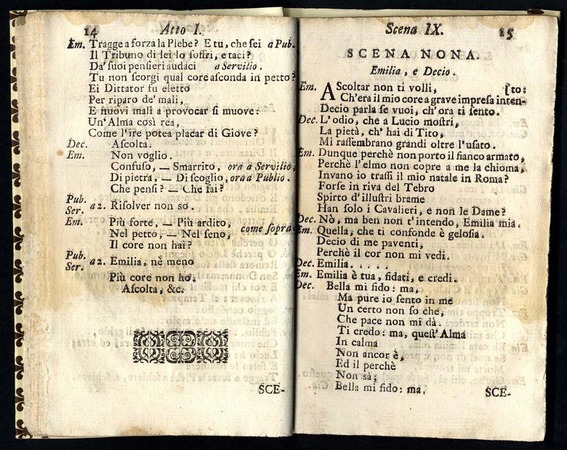 14 Atto I.
Em. Tragge a forza la Plebe? E tu, che sei a Pub.
Il Tribuno di lei lo soffri, e taci?
Da' suoi pensieri audaci a Servilio.
Tu non scorgi qual core asconda in petto?
Ei Dittator fu eletto
Per riparo de' mali,
E nuovi mali a provocar si muove:
Un' Alma così rea,
Come l'ire potea placar di Giove?
Dec. Ascolta.
Em. Non voglio.
Confuso, — Smarrito, ora à Servilio.
Di pietra, — Di scoglio, ora a Publio.
Che pensi? — Che fai?
Pub.
Ser. a 2. Risolver non so.
Em. Più forte, — Più ardito,
Nel petto, — Nel seno, come sopra
Il cor non hai?
Pub.
Ser. a 2. Emilia, nè meno
Più core non ho.
Ascolta, &c.
SCE-
Scena IX. 15
SCENA NONA.
Emilia, e Decio.
Em. AScoltar non ti volli, (to:
Ch'era il mio core a grave impresa inten-
Decio parla se vuoi, ch'ora ti sento.
Dec. L'odio, che a Lucio mostri,
La pietà, ch' hai di Tito,
Mi rassembrano grandi oltre l'usato.
Em. Dunque perchè non porto il fianco armato,
Perchè l'elmo non copre a me la chioma,
Invano io trassi il mio natale in Roma?
Forse in riva del Tebro
Spirto d'illustri brame
Han solo i Cavalieri, e non le Dame?
Dec. Nò, ma ben non t'intendo, Emilia mia.
Em. Quella, che ti confonde è gelosia.
Decio di me paventi,
Perchè il cor non mi vedi.
Dec. Emilia. . . . .
Em. Emilia è tua, fidati, e credi.
Dec. Bella mi fido: ma,
Ma pure io sento in me
Un certo non so che,
Che pace non mi dà.
Ti credo: ma, quest' Alma
In calma
Non ancor è,
Ed il perchè
Non sà;
Bella mi fido: ma,
SCE-